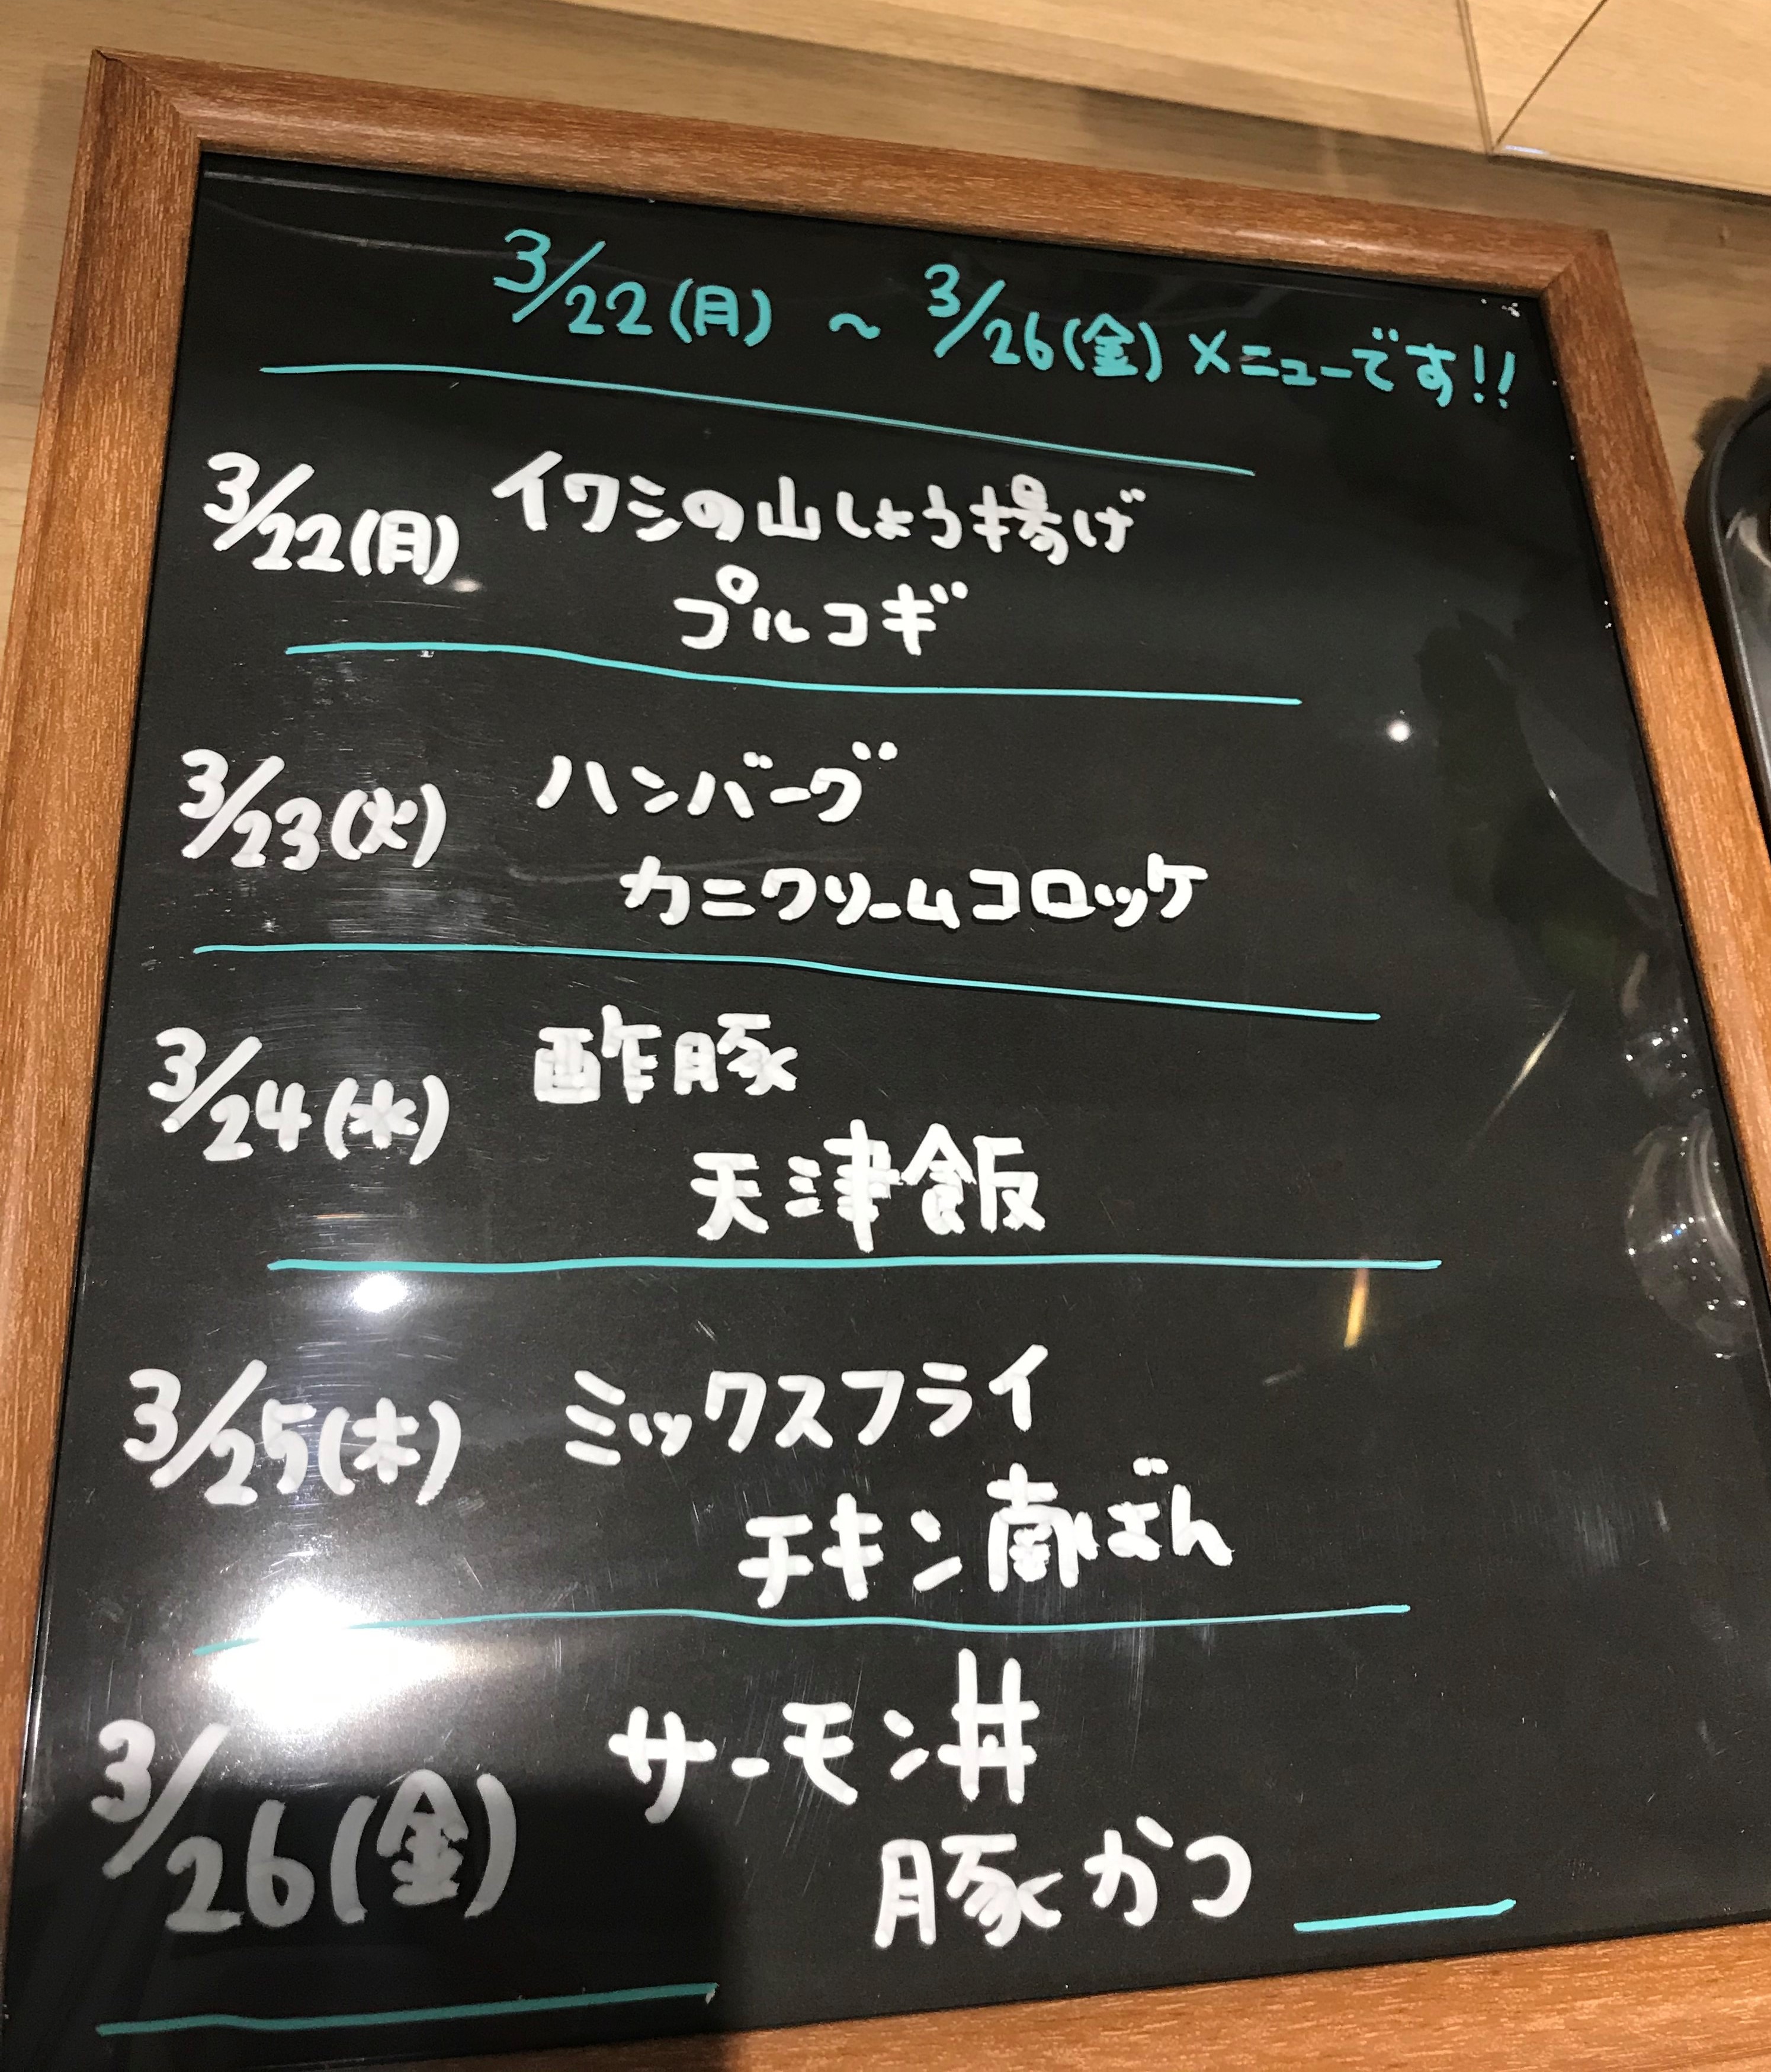 3/22(月) ~ 3/26(金) メニューです!!
3/22(月) イワシの山しょう揚げ
プルコギ
3/23(火) ハンバーグ
カニクリームコロッケ
3/24(水) 酢豚
天津飯
3/25(木) ミックスフライ
チキン南ばん
3/26(金) サーモン丼
豚かつ